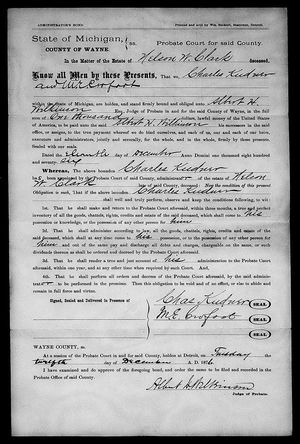 ADMINISTRATOR'S BOND.
Printed and sold by Wm. Stationer, Detroit.
State of Michigan, } ss. Probate Court for said County.
COUNTY OF WAYNE.
In the Matter of the Estate of Nelson W. Clark deceased,
Know all Men by these Presents, That we, Charles Kudner
and M. E. Crofoot
within the State of Michigan, are holden, and stand firmly bound and obliged unto Albert H.
Wilkinson Esq., Judge of Probate in and for the County of Wayne, in the full
sum of One thousand dollars, lawful money of the United States
of America, to be paid unto the said Albert H. Wilkinson his successors in said
office, or assigns, to the true payment whereof we do bind ourselves, and each of us, our and each of our heirs,
executors and administrators, jointly, severally, and firmly by these presents. Sealed with our seals.
Dated the day of December Anno Domini one thousand eight hundred
and seventy six
Whereas, The above bounden Charles Kudner
has been appointed by the Probate Court of said County of the estate of Nelson
W. Clark late of said County, deceased: Now the condition of this present
obligation is such, That if the above bounden Charles Kudner
shall well and truly perform, observe and keep the conditions following, to wit:
1st. That he shall make and return to the Probate Court aforesaid, within three months, a true and perfect
inventory of all the goods, chattels, rights, credits and estate of the said deceased, which shall come to his
possession or knowledge, or the possession of any other person for him
2d. That he shall administer, according to law, all the goods, chattels, rights, credits and estate of the
said deceased, which shall at any time come to his possession, or to the possession of any other person for
him and out of the same pay and discharge all debts and charges, chargeable on the same, or such
dividends thereon as shall be ordered and decreed by the Probate Court aforesaid.
3d. That he shall render a true and just account of his administration to the Probate Court
aforesaid, within one year, and at any other time when required by said Court. And,
4th. That he shall perform all orders and decrees of the Probate Court aforesaid, by the said administra-
tor to be performed in the premises. Then this obligation to be void and of no effect, or else to abide and
remain in full force and virtue.
Signed, Sealed and Delivered In Presence of
Chas Kudner SEAL
M. E. Crofoot SEAL
SEAL
WAYNE COUNTY, ss.
At a session of the Probate Court in and for said County, holden at Detroit, on Tuesday the
twelfth day of December A. D. 1876
I have examined and do approve of the foregoing bond, and order the same to be filed and recorded in the
Probate Office of said County.
Albert H. Wilkinson
Judge of Probate.